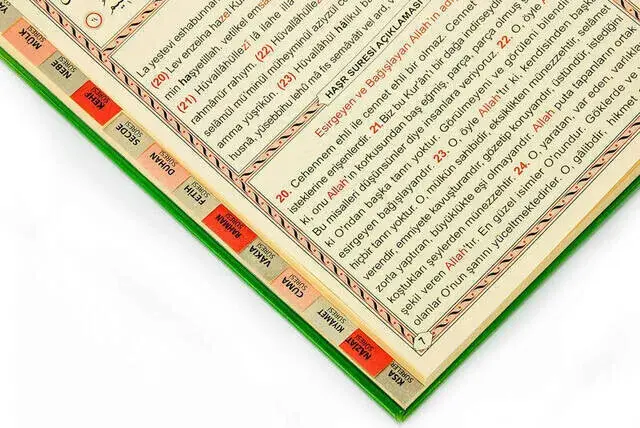 La yestevi eshabunnar
(20) Lev enzelna haz
min haşyetillah, vetilkel ems
(21) Hüvallâhülle
rahmânür rahıym. (22) Hüvallâhüllezi lâ ilahe ill
selâmül mü'minül müheyminül aziyzül c
amma yüşrikûn. (23) Hüvallâhül hâlikul b
husnâ, yüsebbihu lehû mâ fis semâvâti vel ard,
HAŞR SURESİ AÇIKLAMASI
Esirgeyen ve Bağışlayan Allah'ın adı
20. Cehennem ehli ile cennet ehli bir olmaz. Cennet
isteklerine erişenlerdir. 21. Biz bu Kur'ân'ı bir dağa indirseydi
ki, onu Allah'ın korkusundan baş eğmiş, parça, parça olmuş
Bu misalleri düşünsünler diye insanlara veriyoruz. 22. O, öyle
ki O'ndan başka tanrı yoktur. Görünmeyeni ve görüleni bilendi
esirgeyen bağışlayandır. 23. O, öyle Allah'tır ki, kendisinden başka
hiçbir tanrı yoktur. O, mülkün sahibidir, eksiklikten münezzehtir, selâmet
verendir, emniyete kavuşturandır, gözetip koruyandır, üstündür, istediğin
zorla yaptıran, büyüklükte eşi olmayandır. Allah puta tapanların ortak
koştukları şeylerden münezzehtir. 24. O, yaratan, var eden, varlık
şekil veren Allah'tır. En güzel isimler O'nundur. Göklerde ve
olanlar O'nun şanını yüceltmektedirler. O, gâlibdir, hikme
7
MÜLK SURESİ
NEBE SURESİ
KEHF SURESİ
SECDE SURESİ
DUHAN SURESİ
FETİH SURESİ
RAHMAN SURESİ
VAKIA SURESİ
CUMA SURESİ
KIYAMET SURESİ
NAZİAT SURESİ
KISA SURELER